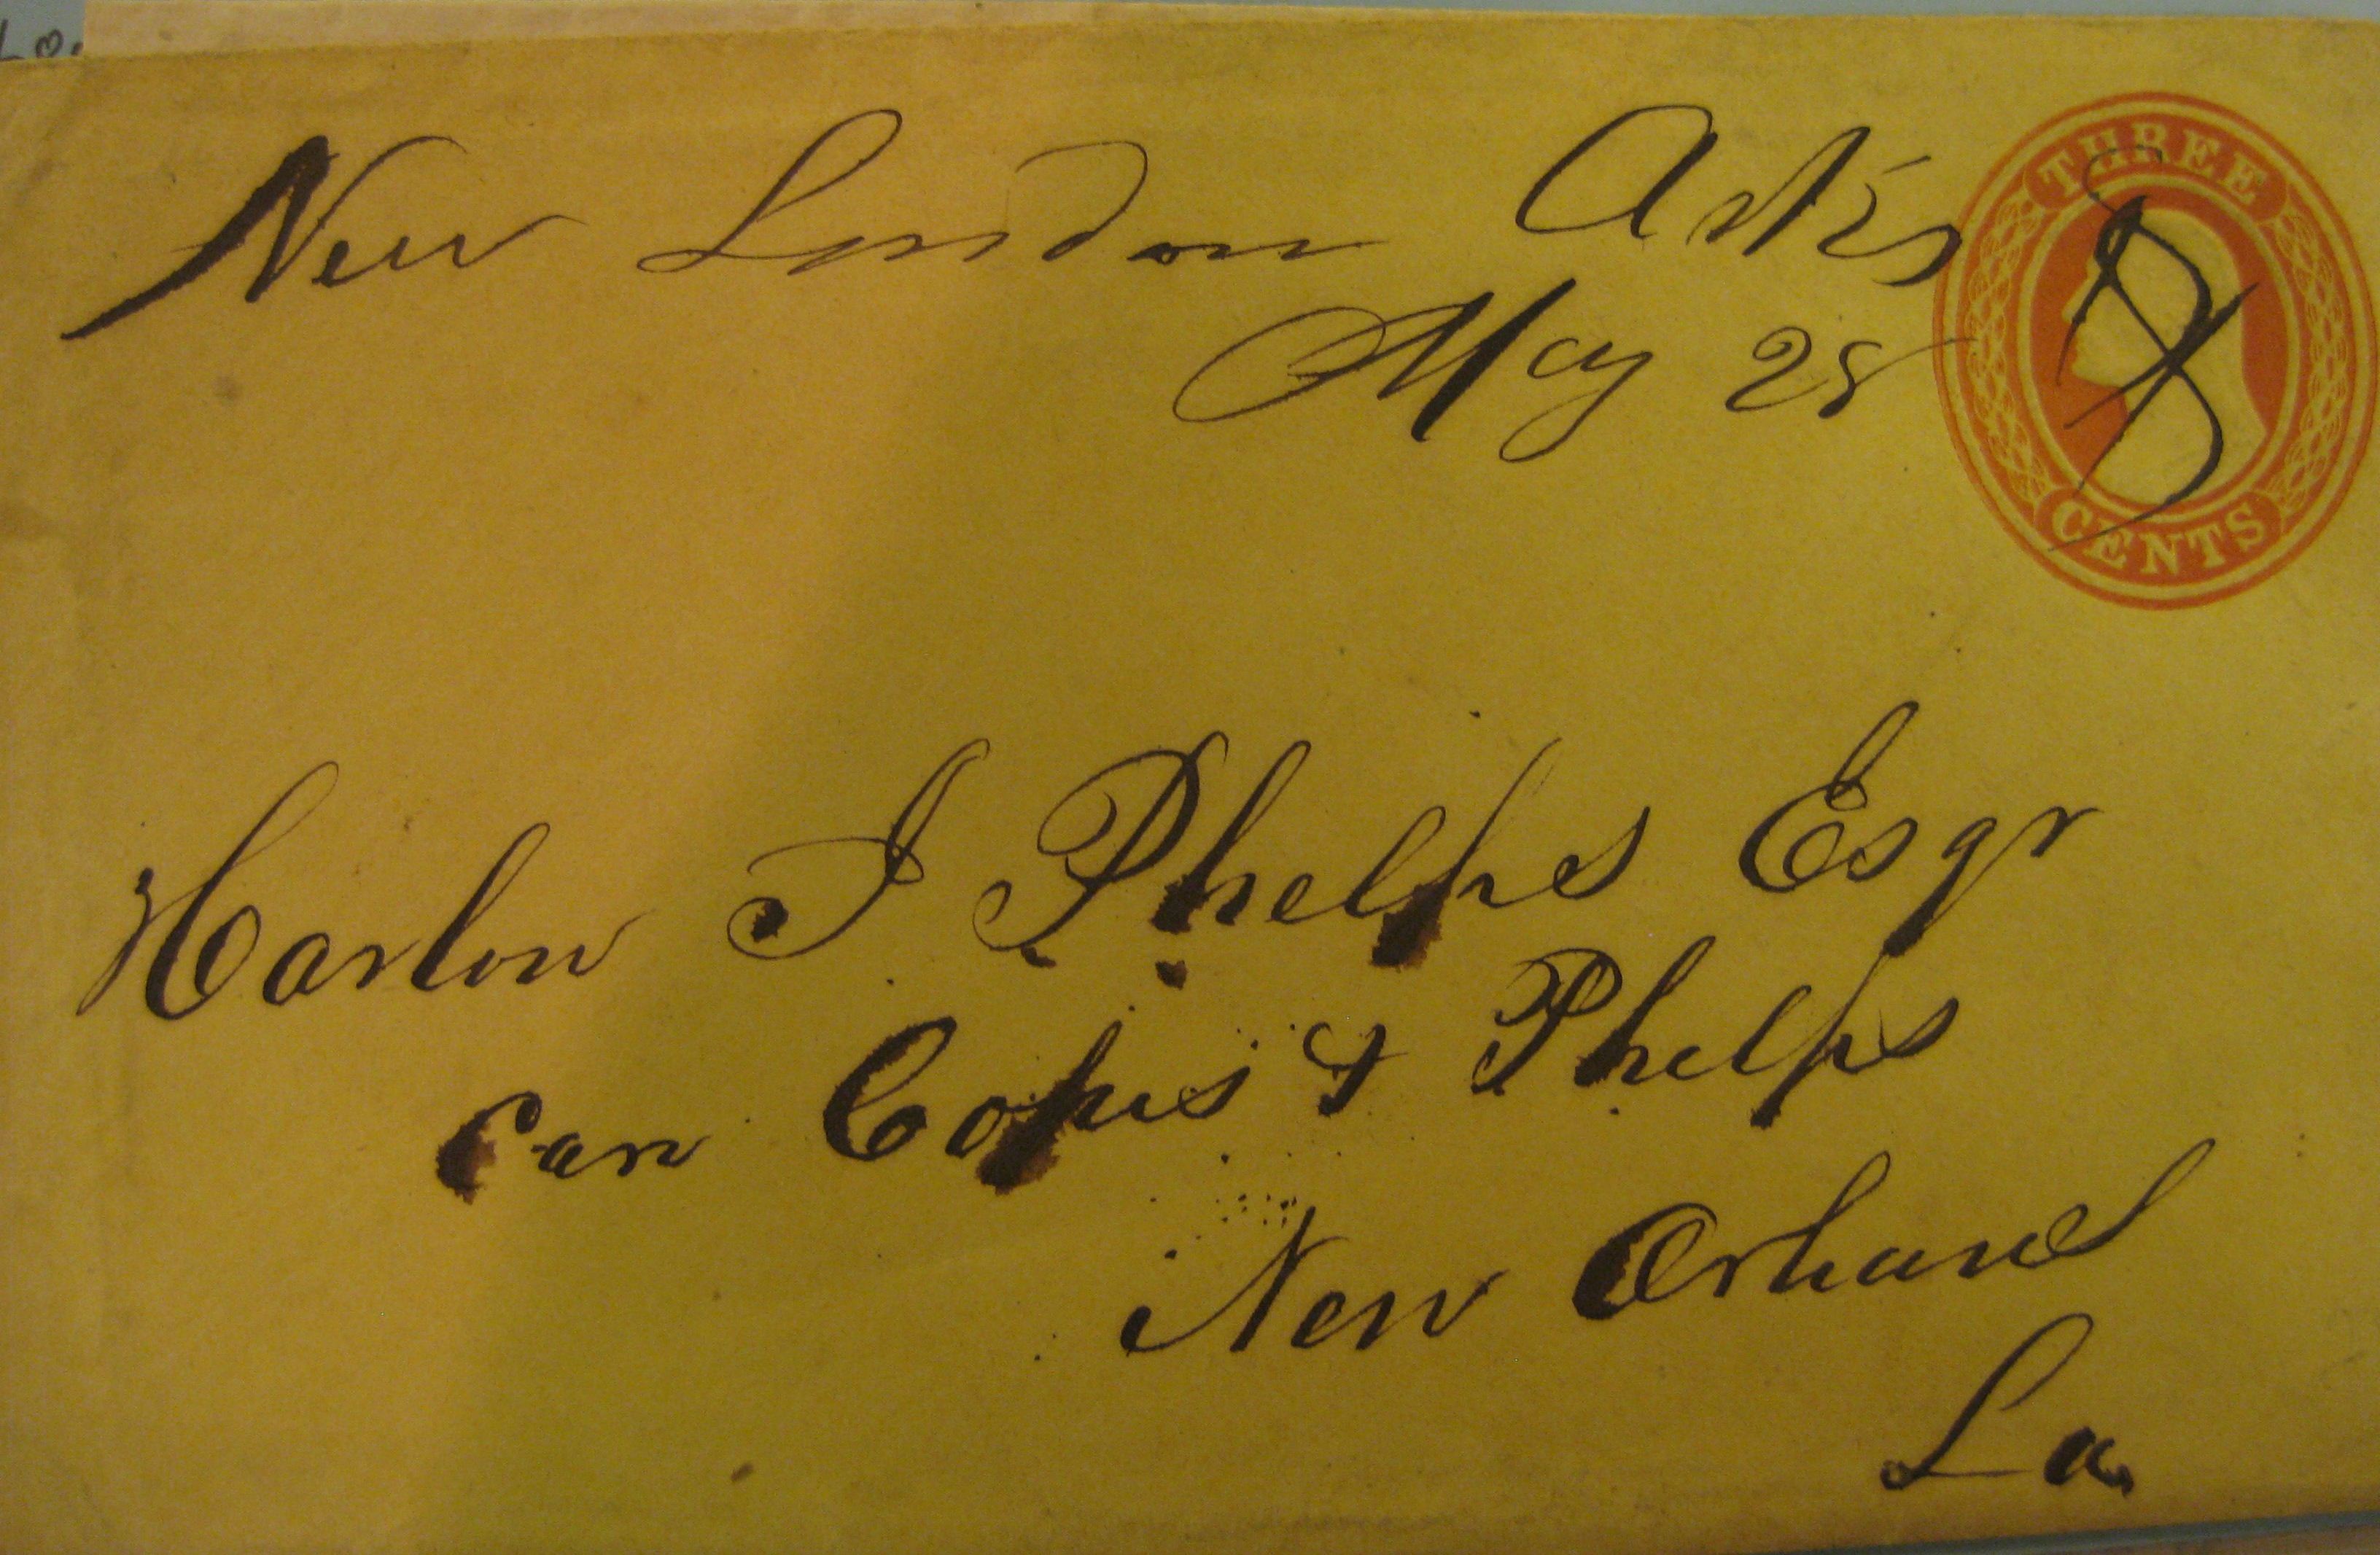 New London Arks
THREE
CENTS
May 28
Harlow J Phelps Esqr
Care Copes & Phelps
New Orleans
La